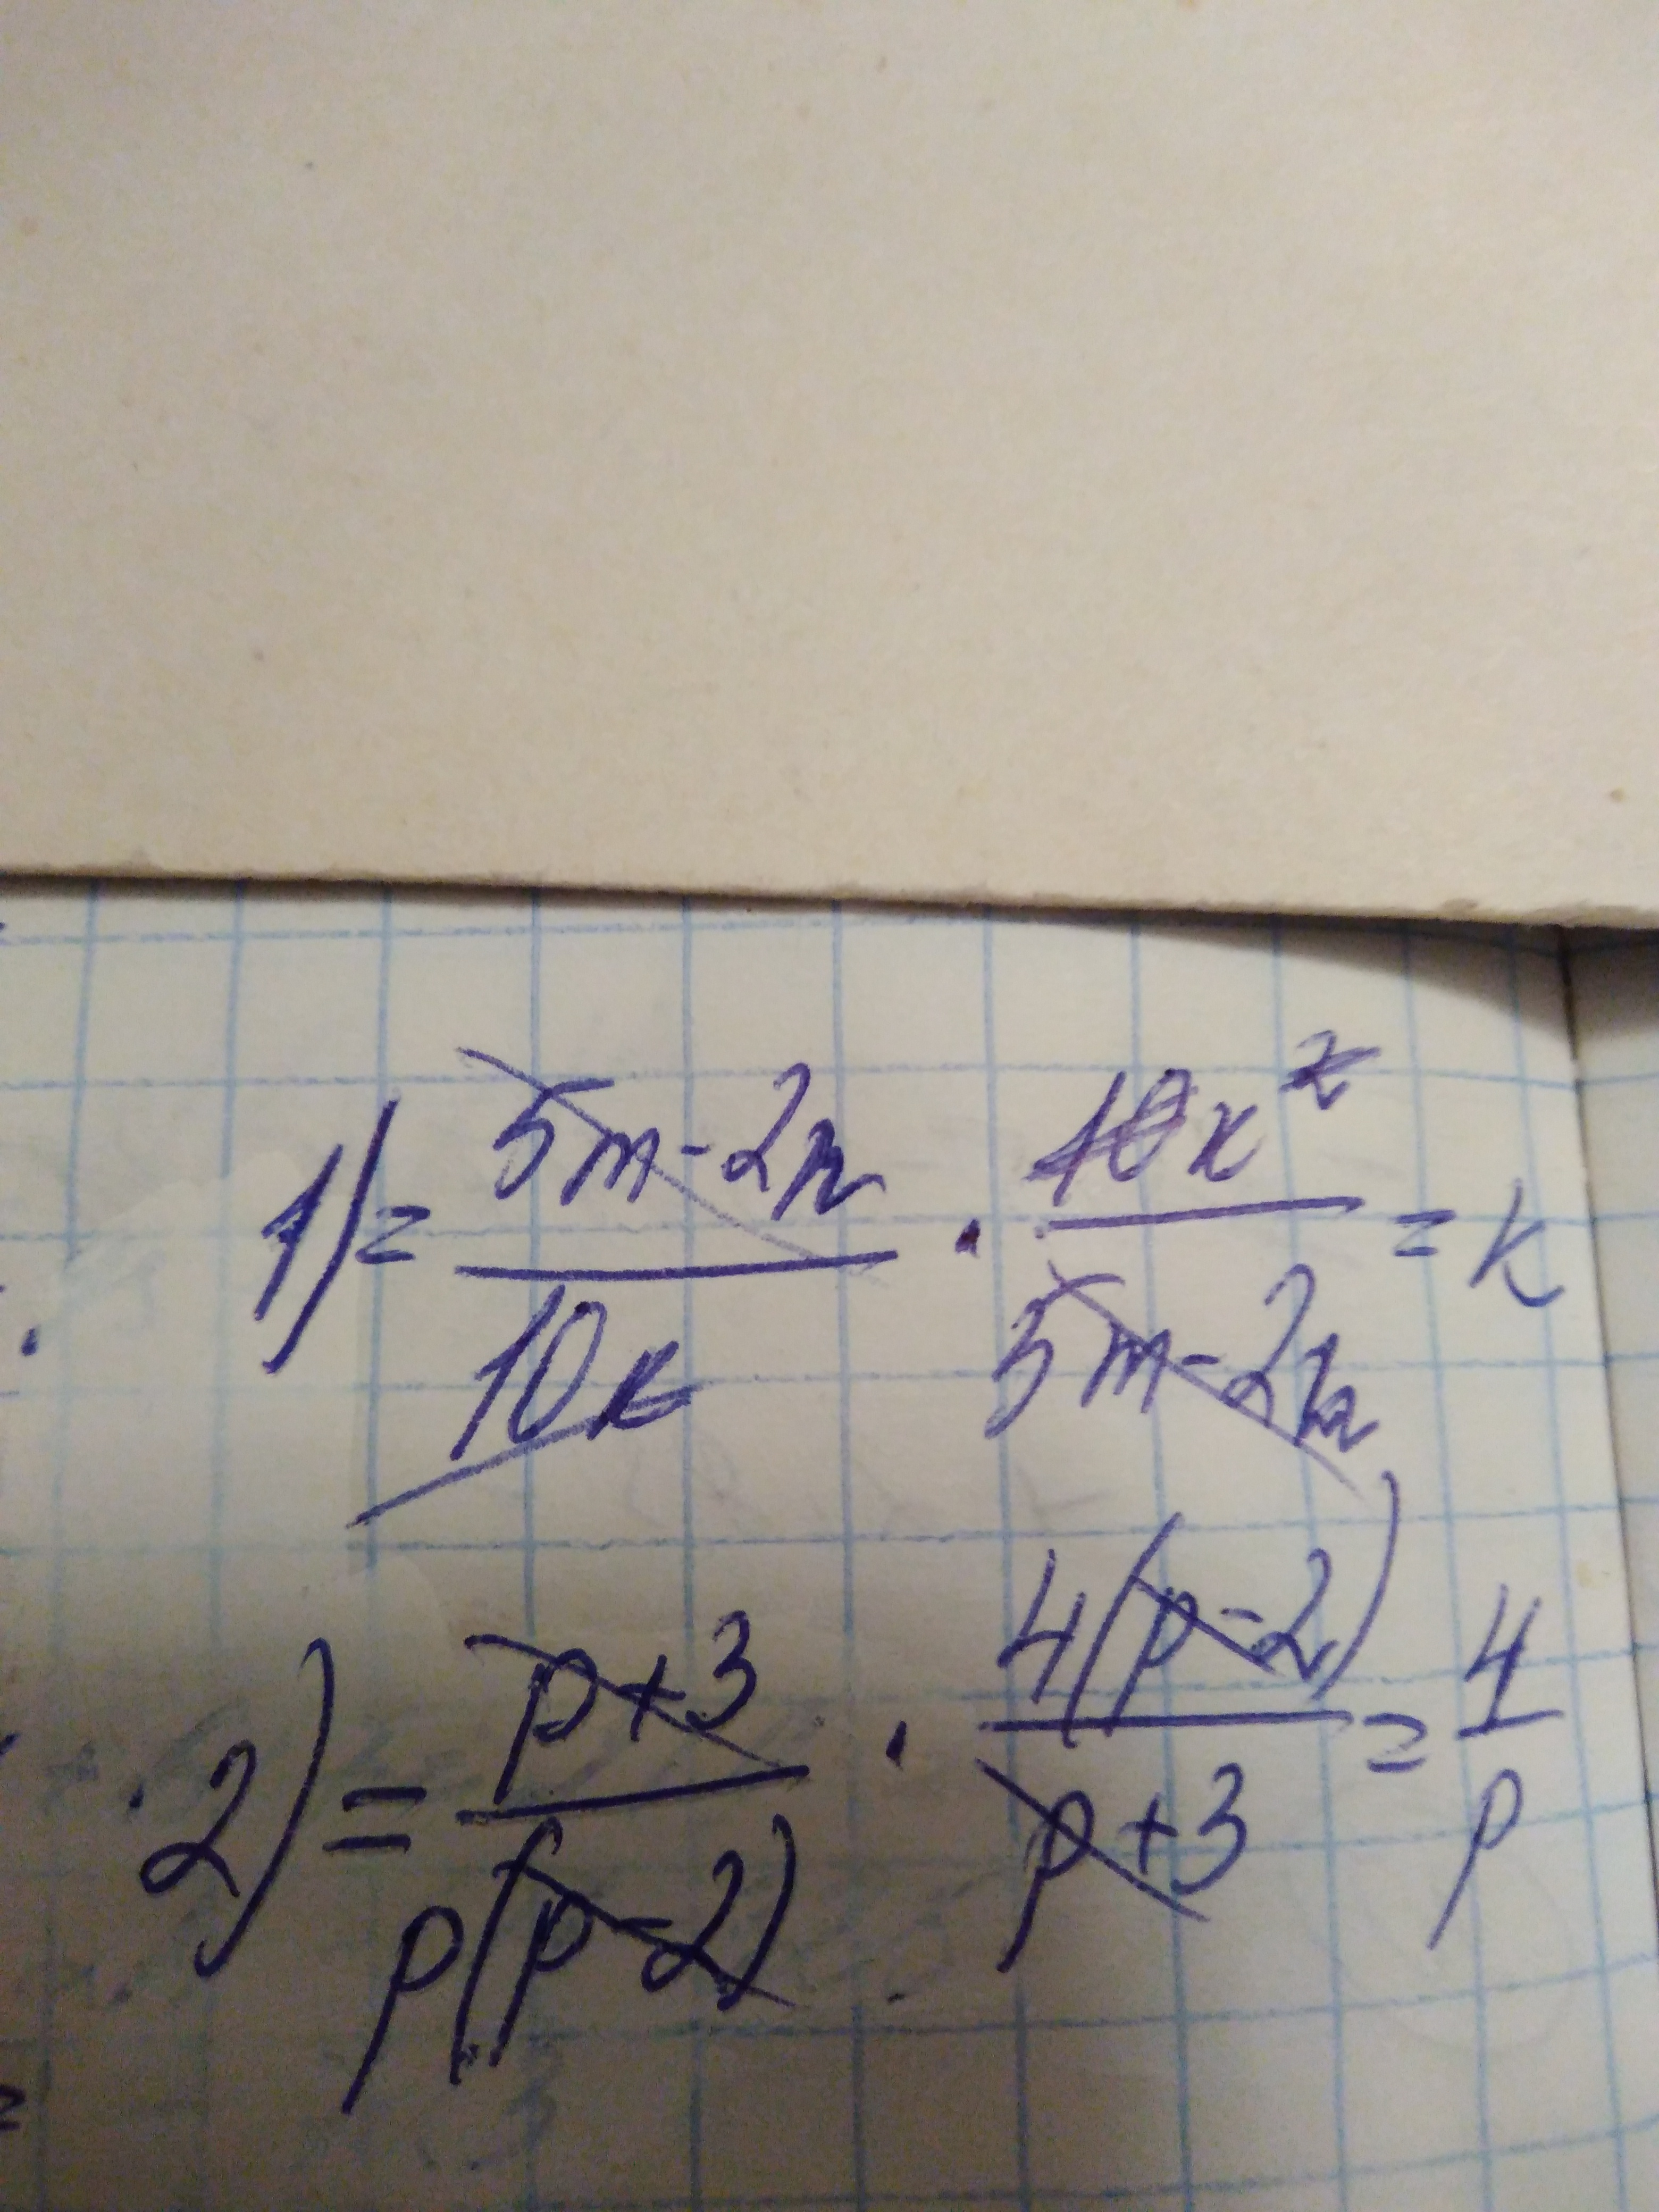 1) = 5m-2n / 10k · 10k² / 5m-2n = k
2) = p+3 / p(p-2) · 4(p-2) / p+3 = 4 / p